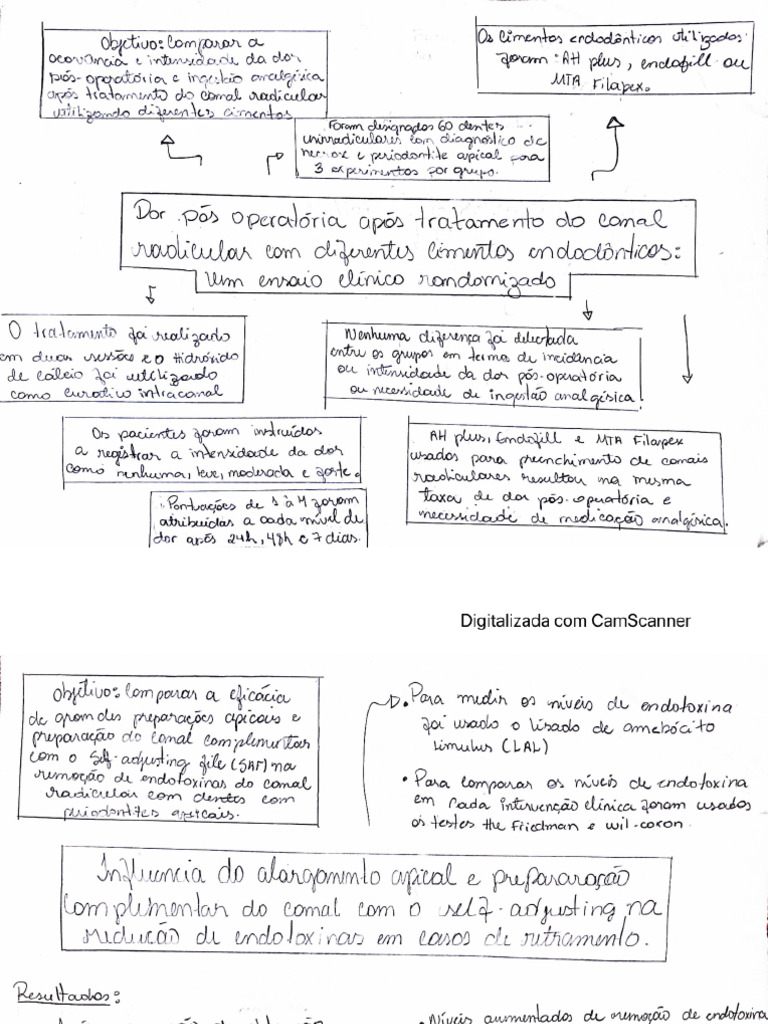 Objetivo: Comparar a
ocorrência e intensidade da dor
pós-operatória e ingestão analgésica
após tratamento do canal radicular
utilizando diferentes cimentos
Os Cimentos endodônticos utilizados
foram: AH plus, endofill ou
MTA Filapex.
Foram designados 60 dentes
unirradiculares com diagnóstico de
necrose e periodontite apical para
3 experimentos por grupo.
Dor pós operatória após tratamento do canal
radicular com diferentes cimentos endodônticos:
Um ensaio clínico randomizado
O tratamento foi realizado
em duas sessão e o Hidróxido
de cálcio foi utilizado
como curativo intracanal
Nenhuma diferença foi detectada
entre os grupos em termo de incidência
ou intensidade da dor pós-operatória
ou necessidade de ingestão analgésica.
Os pacientes foram instruídos
a registrar a intensidade da dor
como nenhuma, leve, moderada e forte.
AH plus, Endofill e MTA Filapex
usados para preenchimento de canais
radiculares resultou na mesma
taxa de dor pós-operatória e
necessidade de medicação analgésica.
Pontuações de 1 à 4 foram
atribuídas a cada nível de
dor após 24h, 48h e 7 dias.
Digitalizada com CamScanner
Objetivo: Comparar a eficácia
de grandes preparações apicais e
preparação do canal complementar
com o Self-adjusting file (SAF) na
remoção de endotoxinas do canal
radicular com dentes com
periodontites apicais.
• Para medir os níveis de endotoxina
foi usado o lisado de amebócito
Limulus (LAL)
• Para comparar os níveis de endotoxina
em cada intervenção clínica foram usados
os testes the Friedman e wil-coxon.
Influencia do alargamento apical e prepararação
complementar do canal com o self-adjusting na
redução de endotoxinas em casos de
Resultados:
• Níveis aumentados de remoção de endotoxina